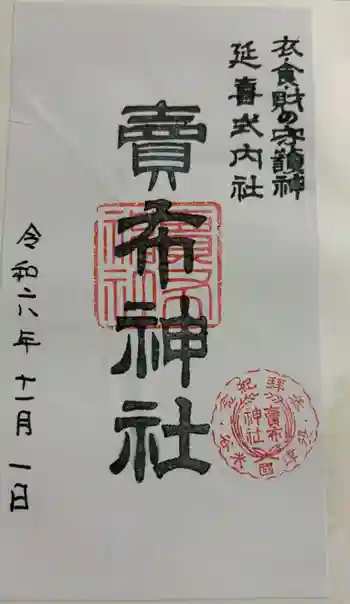 衣食財の守護神
延喜式内社
賣布神社
賣布神社
令和六年十一月一日
賣布神社